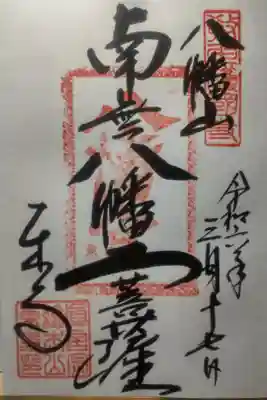 八幡山
令和六年三月十七日
南無八幡大菩薩
東寺